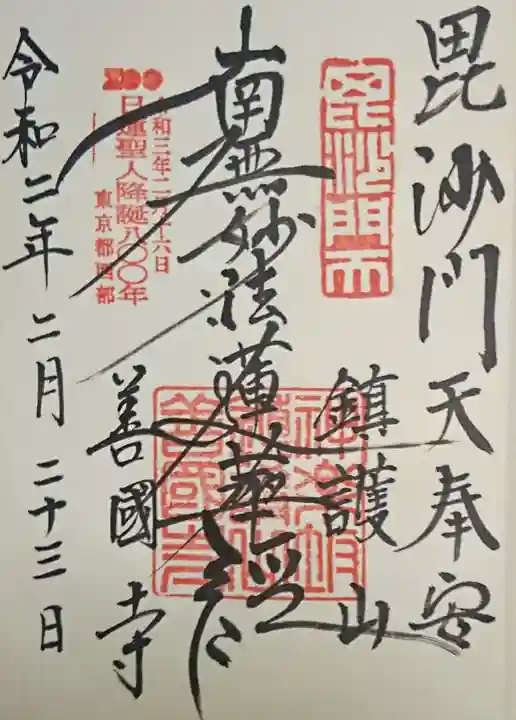 毘沙門天奉安
毘沙門天
鎮護山
南無妙法蓮華経
令和三年二月十六日
日蓮聖人降誕八〇〇年
東京都西部
善國寺
令和二年二月二十三日